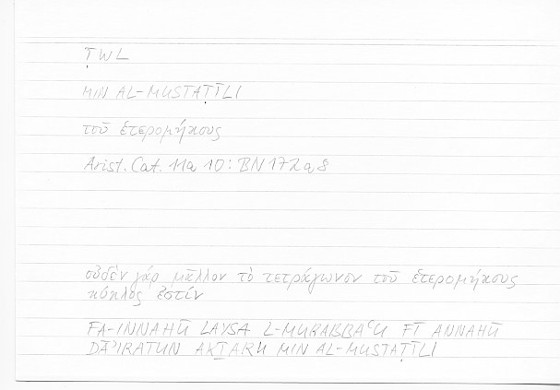 ṬWL
MIN AL-MUSTAṬĪLI
τοῦ ἑτερομήκους
Arist. Cat. 11a 10 : BN 172a8
οὐδὲν γάρ μᾶλλον τὸ τετράγωνον τοῦ ἑτερομήκους
κύκλος ἐστίν
FA-INNAHŪ LAYSA L-MURABBAʿU FĪ ANNAHŪ
DĀʾIRATUN AKṮARU MIN AL-MUSTAṬĪLI